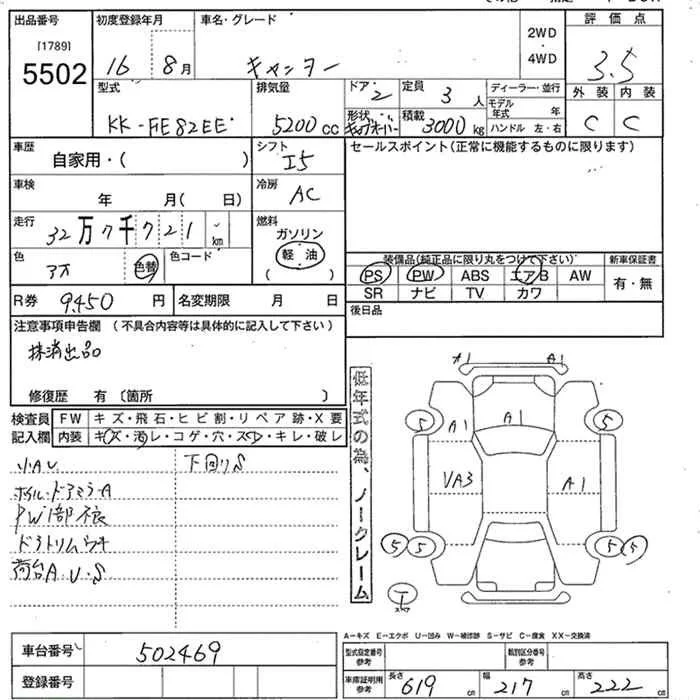 出品番号 初度登録年月 車名・グレード 2WD・4WD 評価点
[1789]
5502 16 8月 キャンター 3.5
型式 排気量 ドア 2 定員 3人 ディーラー・並行 外装 内装
モデル年式 年
KK-FE82EE 5200cc 形状 キャブオーバー 積載 3000kg ハンドル 左・右 C C
車歴 自家用・( ) シフト I5 セールスポイント(正常に機能するものに限ります)
車検 年 月(日) 冷房 AC
走行 32万7千721km 燃料 ガソリン
軽油
( )
色 色替 色コード 装備品(純正品に限り丸をつけて下さい) 新車保証書
PS PW ABS エアB AW 有・無
R券 9.450円 名変期限 月 日 SR ナビ TV カワ
後日品
注意事項申告欄 (不具合内容等は具体的に記入して下さい)
抹消出品
修復歴 有(箇所 )
検査員 FW キズ・飛石・ヒビ割・リペア跡・X要
記入欄 内装 キズ・汚レ・コゲ・穴・スレ・キレ・破レ
小AU 下回りS
ホイル・ドアミラーA
PW1部不良
ドアトリムウキ
荷台A.U.S
低年式の為、ノークレーム
A1 A1
5 A1 A1 5
VA3 A1
5 5 5 5
スペア
A-キズ E-エクボ U-凹み W-補修跡 S-サビ C-腐食 XX-交換済
車台番号 502469 型式指定番号 参考 類別区分番号 参考
登録番号 車庫証明用 参考 長さ 619cm 幅 217cm 高さ 222cm